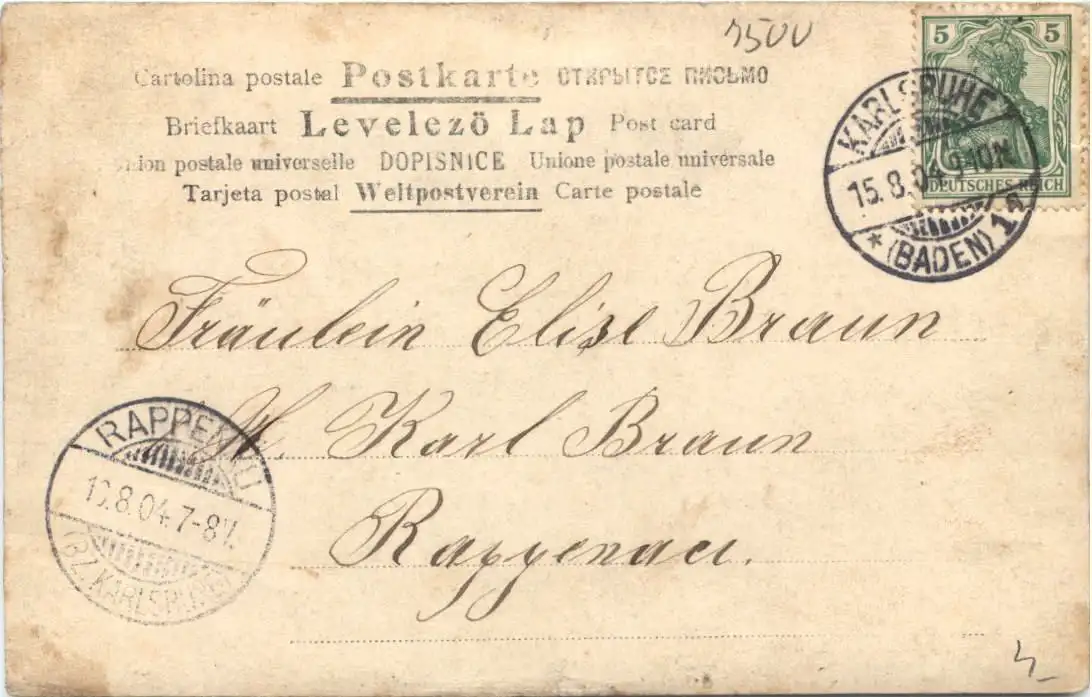 7500
Cartolina postale Postkarte ОТКРЫТОЕ ПИСЬМО
Briefkaart Levelezö Lap Post card
Union postale universelle DOPISNICE Unione postale universale
Tarjeta postal Weltpostverein Carte postale
5 5
DEUTSCHES REICH
KARLSRUHE
15.8.04 9-10N
* (BADEN) 1
Fräulein Elise Braun
H. Karl Braun
Rappenau.
RAPPENAU
16.8.04.7-8V.
(BZ. KARLSRUHE)